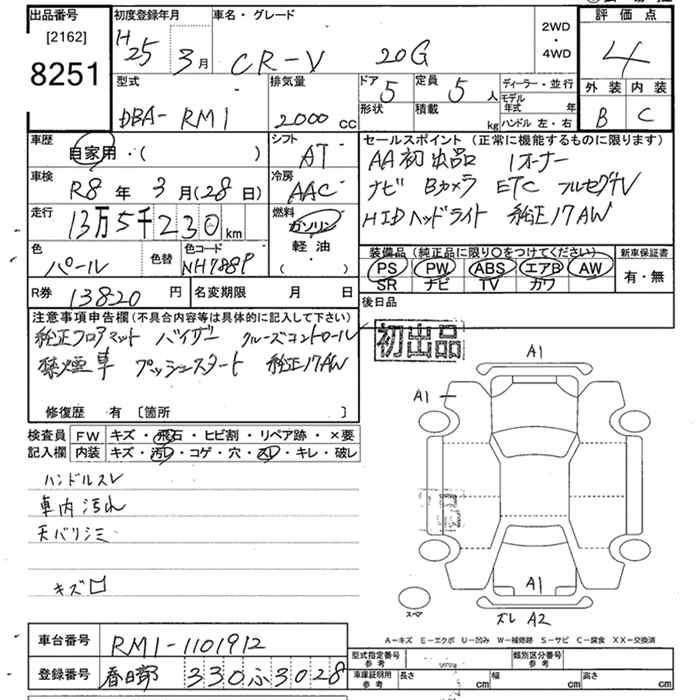 出品番号
[2162]
8251
初度登録年月
H25 3月
車名・グレード
CR-V 20G
2WD・4WD
評価点
4
外装 内装
B C
型式
DBA-RM1
排気量
2000 cc
ドア 5
定員 5 人
形状
積載 kg
ディーラー・並行
モデル年式 年
ハンドル 左・右
車歴
自家用・( )
シフト
AT
セールスポイント (正常に機能するものに限ります)
AA初出品 1オーナー
ナビ Bカメラ ETC フルセグTV
HIDヘッドライト 純正17AW
車検
R8年 3月(28日)
冷房
AAC
走行
13万5千230km
燃料
ガソリン
軽油
・( )
色
パール
色替
色コード
NH788P
装備品 (純正品に限り○をつけてください)
PS PW ABS エアB AW
SR ナビ TV カワ
新車保証書
有・無
R券 13820円
名変期限 月 日
後日品
初出品
注意事項申告欄(不具合内容等は具体的に記入して下さい)
純正フロアマット バイザー クルーズコントロール
禁煙車 プッシュスタート 純正17AW
修復歴 有 [箇所 ]
検査員記入欄
FW キズ・飛石・ヒビ割・リペア跡・×要
内装 キズ・汚レ・コゲ・穴・スレ・キレ・破レ
ハンドルスレ
車内汚れ
天バリシミ
キズ□
A1
A1
A1
スペア
ズレ A2
A-キズ E-エクボ U-凹み W-補修跡 S-サビ C-腐食 XX-交換済
車台番号 RM1-1101912
登録番号 春日部 330 ふ 3028
型式指定番号 参考
類別区分番号 参考
車庫証明用 参考 長さ cm 幅 cm 高さ cm